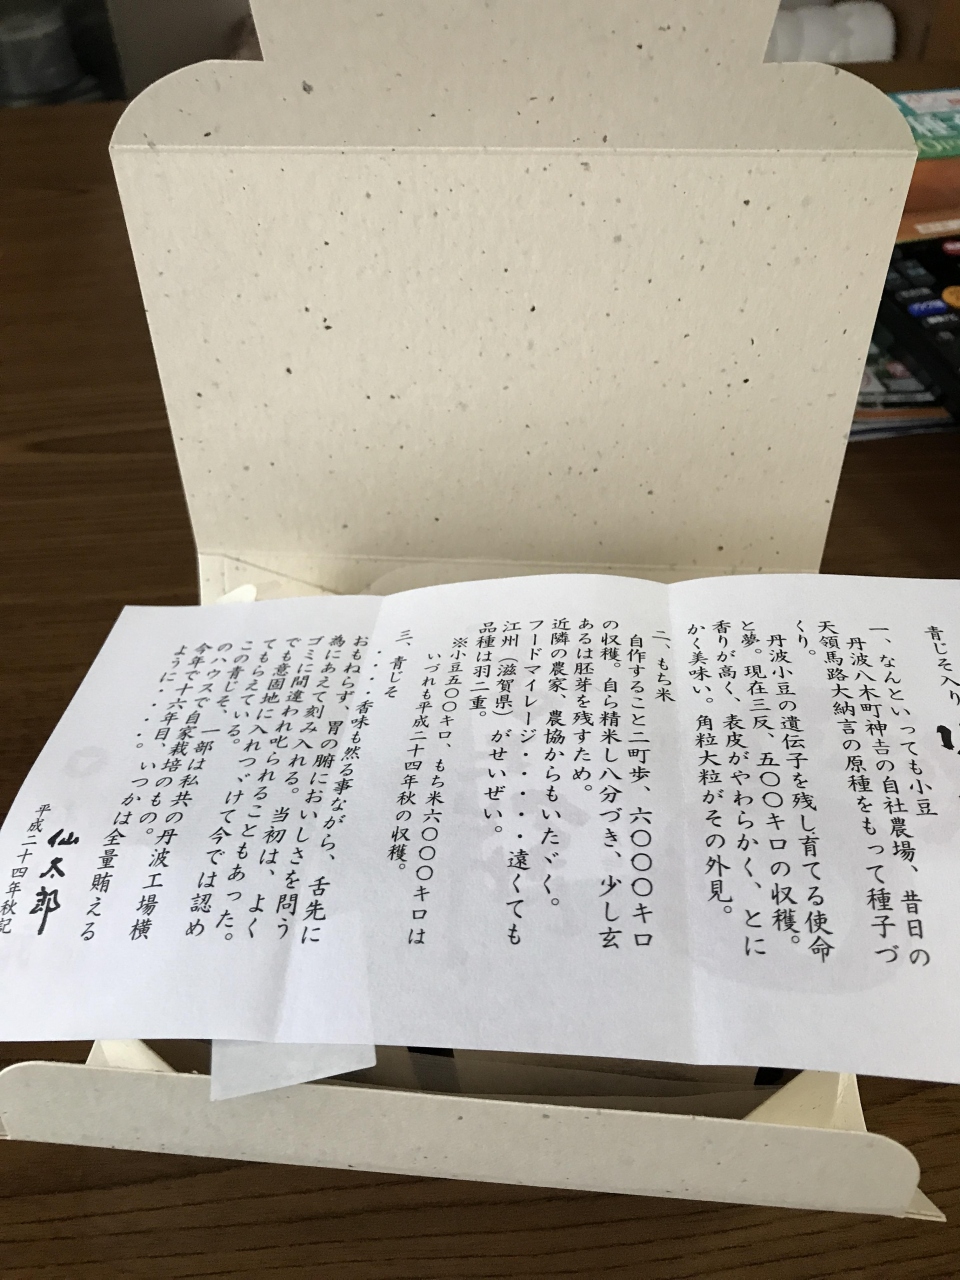 青じそ入り
一、なんといっても小豆
丹波八木町神吉の自社農場、昔日の
天領馬路大納言の原種をもって種子づ
くり。
丹波小豆の遺伝子を残し育てる使命
と夢。現在三反、五〇〇キロの収穫。
香りが高く、表皮がやわらかく、とに
かく美味い。角粒大粒がその外見。
二、もち米
自作すること二町歩、六〇〇〇キロ
の収穫。自ら精米し八分づき、少し玄
あるは胚芽を残すため。
近隣の農家、農協からもいたゞく。
フードマイレージ・・・・遠くても
江州（滋賀県）がせいぜい。
品種は羽二重。
※小豆五〇〇キロ、もち米六〇〇〇キロは
いづれも平成二十四年秋の収穫。
三、青じそ
・・・香味も然る事ながら、舌先に
おもねらず、胃の腑においしさを問う
為にあえて刻み入れる。当初は、よく
ゴミに間違われ叱られることもあった。
でも意固地に入れつゞけて今では認め
てもらえている。
この青じそ、一部は私共の丹波工場横
のハウスで自家栽培のもの。
今年で十六年目、いつかは全量賄える
ように・・・・。
仙太郎
平成二十四年秋記